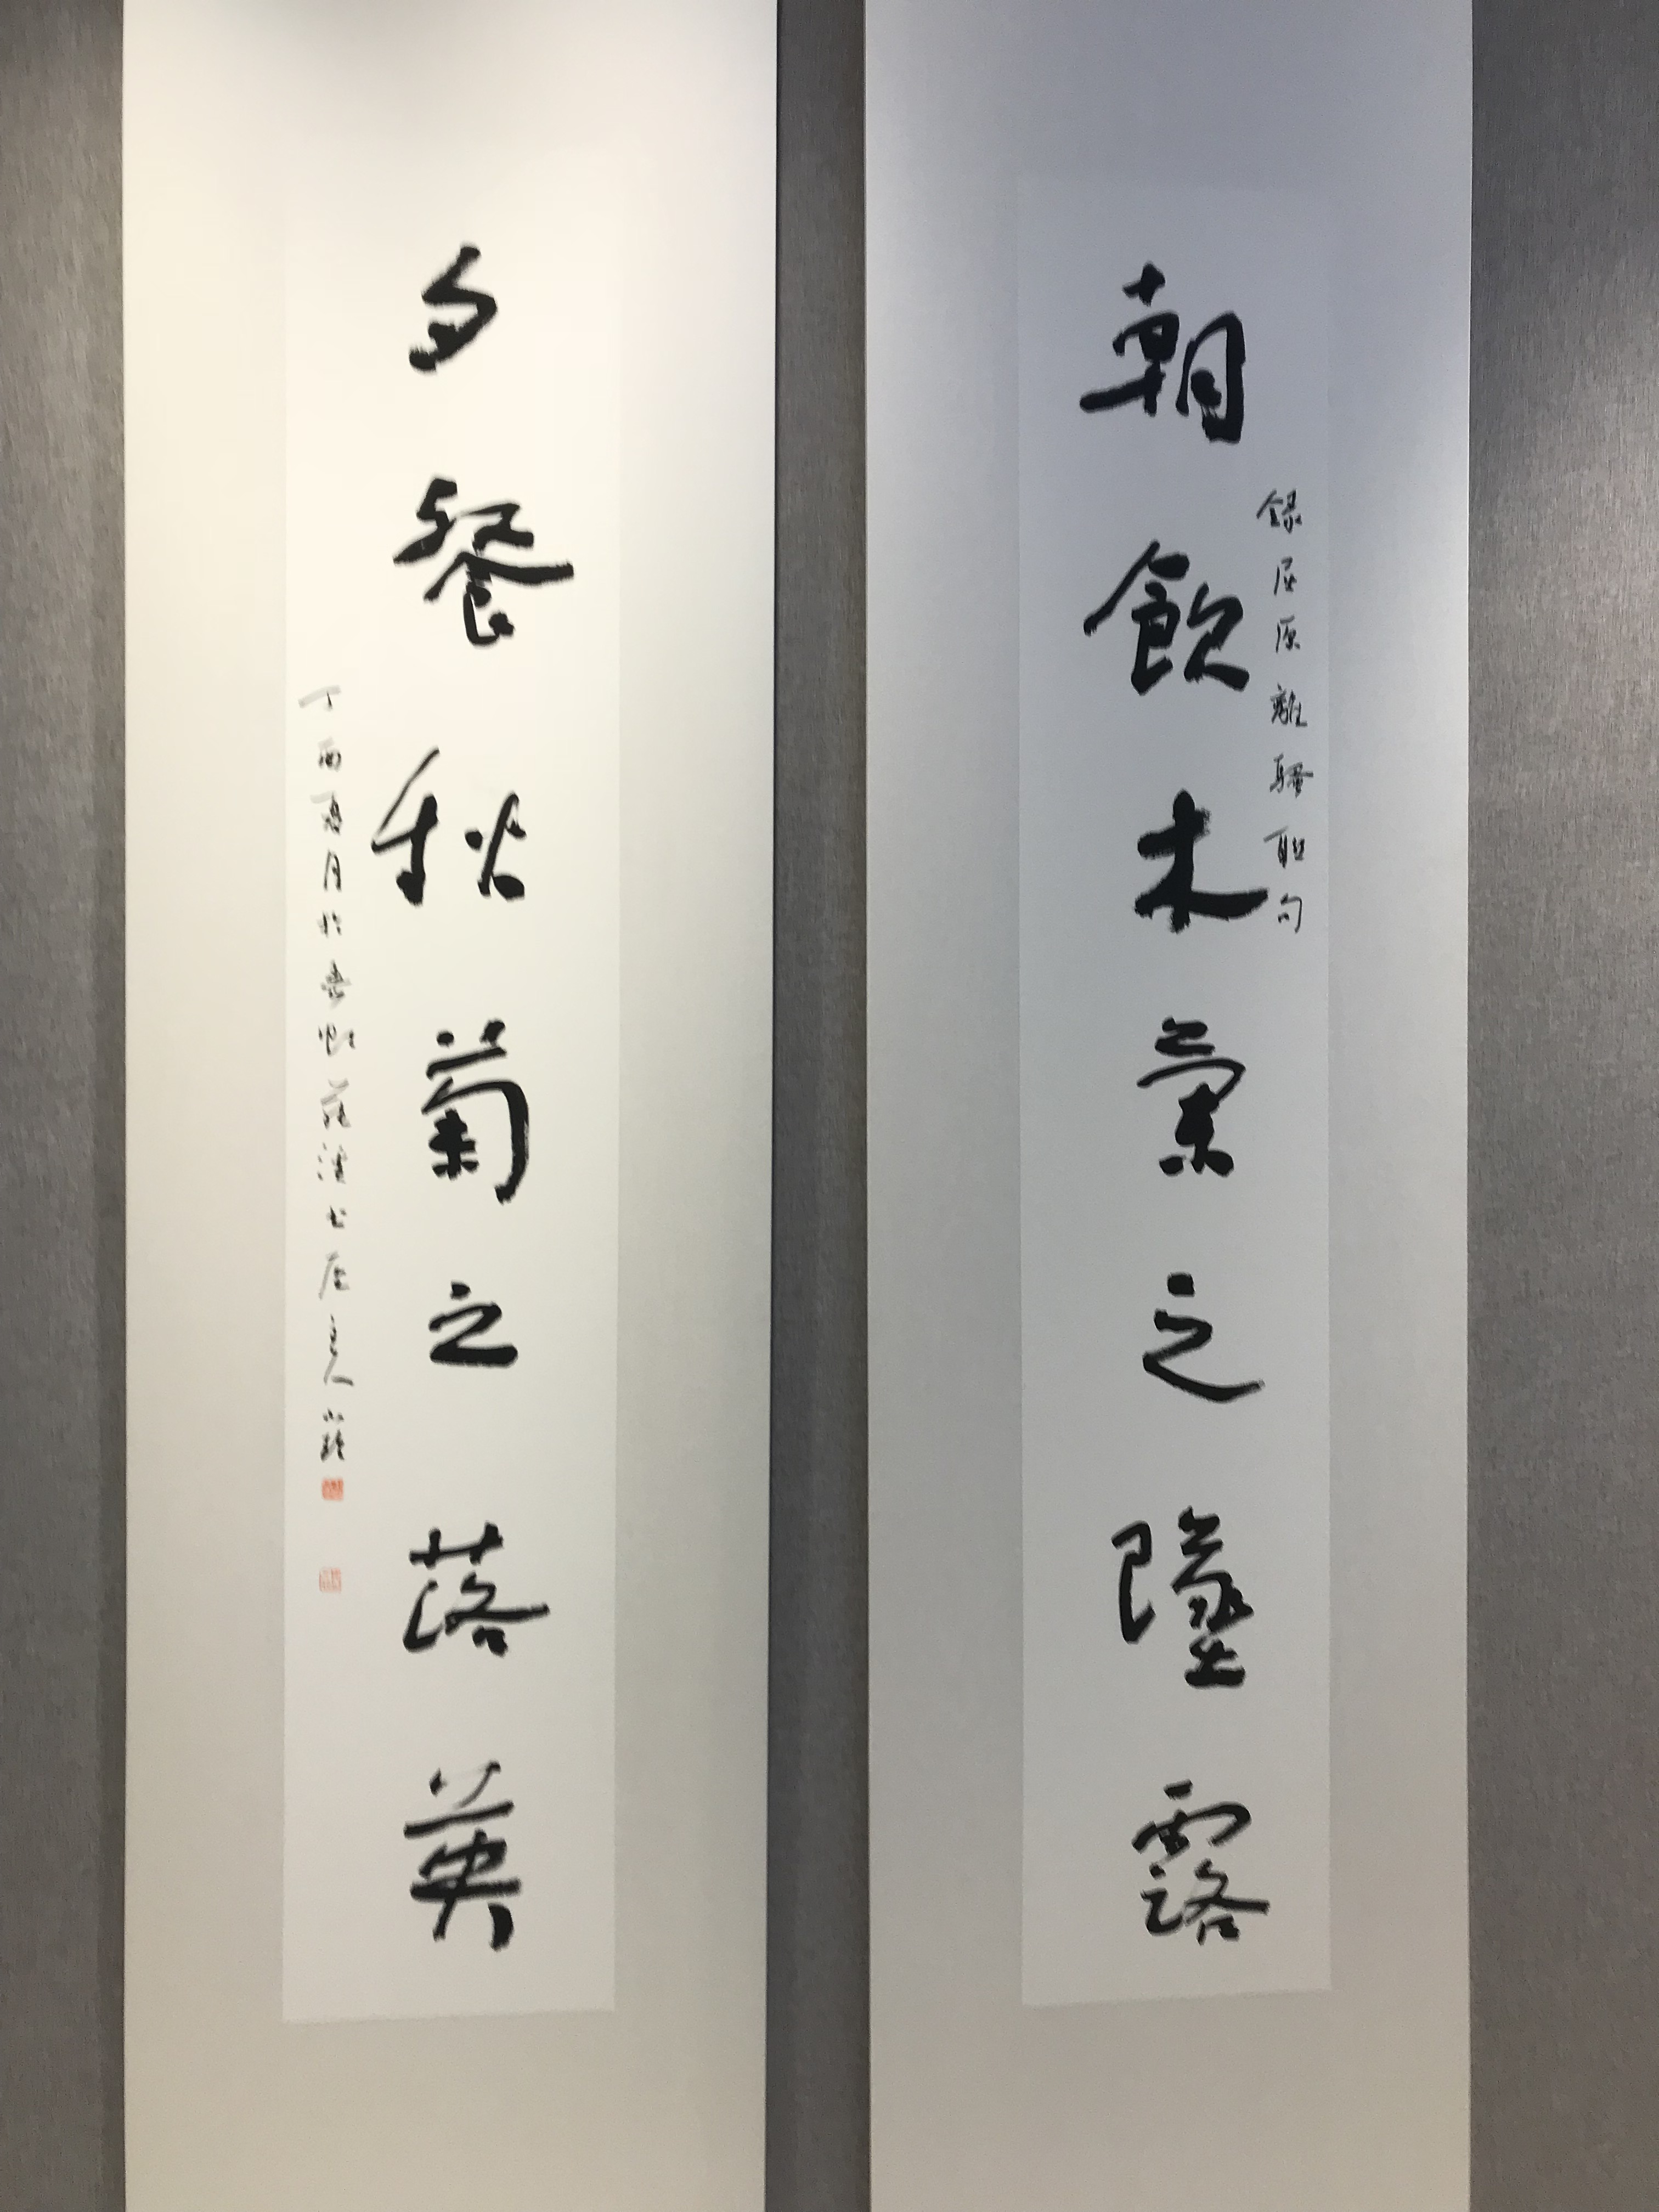 朝飲木蘭之墜露
錄屈原離騷聯句
夕餐秋菊之落英
丁酉夏月於主人